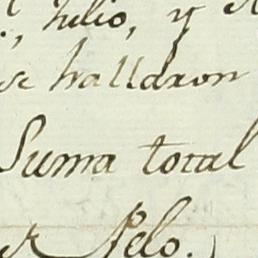 helio, y
se halldron
Suma total
Pelo.